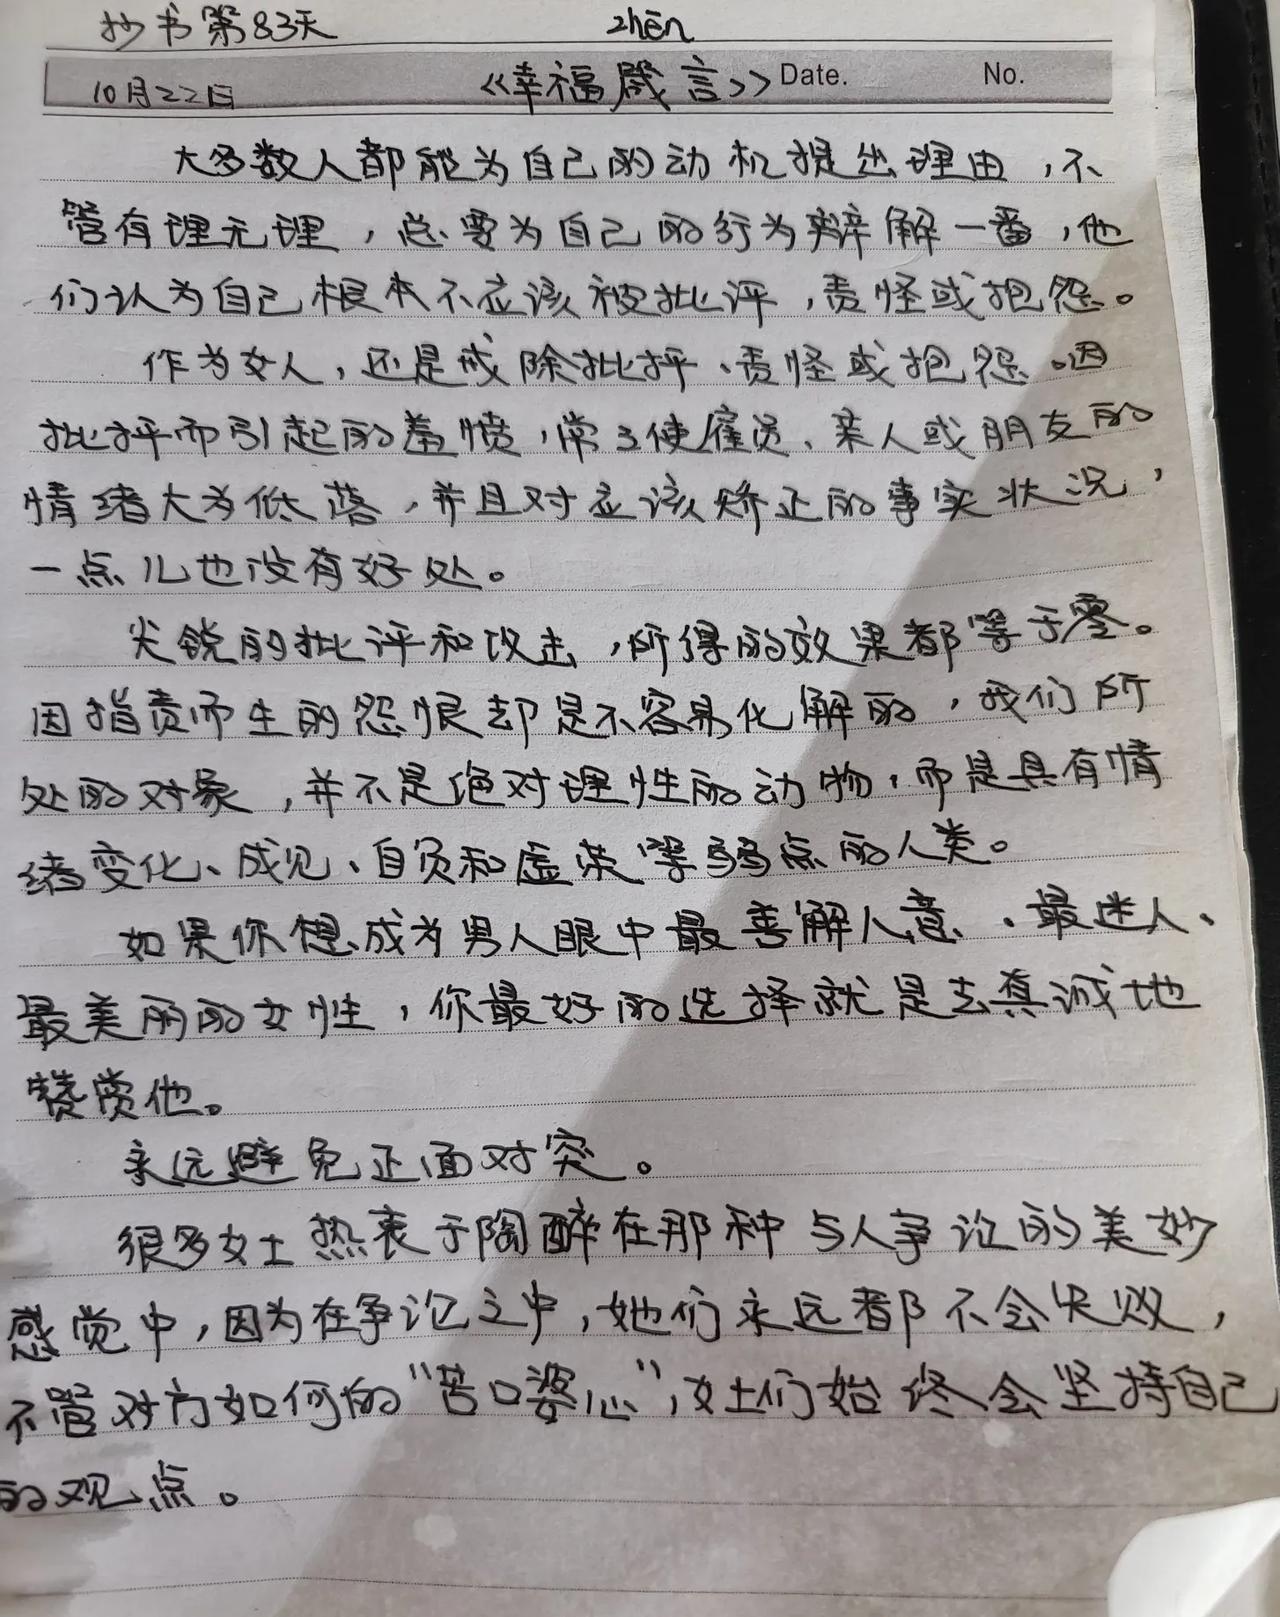 抄书第83天
zhēn
10月22日 《幸福箴言》 Date. No.
大多数人都能为自己的动机提出理由，不
管有理无理，总要为自己的行为辩解一番，他
们认为自己根本不应该被批评，责怪或抱怨。
作为女人，还是戒除批评、责怪或抱怨。因
批评而引起的羞愤，常常使雇员、亲人或朋友的
情绪大为低落，并且对应该矫正的事实状况，
一点儿也没有好处。
尖锐的批评和攻击，所得的效果都等于零。
因指责而生的怨恨却是不容易化解的，我们所
处的对象，并不是绝对理性的动物，而是具有情
绪变化、成见、自负和虚荣等弱点的人类。
如果你想成为男人眼中最善解人意、最迷人、
最美丽的女性，你最好的选择就是去真诚地
赞赏他。
永远避免正面对突。
很多女士热衷于陶醉在那种与人争论的美妙
感觉中，因为在争论之中，她们永远都不会失败，
不管对方如何的“苦口婆心”，女士们始终会坚持自己
的观点。